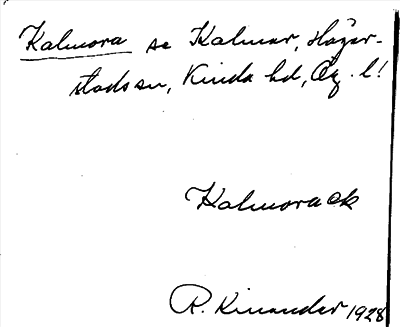 Kalmora se Kalmar, Hägerstadssn, Kinda hd, Ög. l!
Kalmoraek
R. Kinander 1928